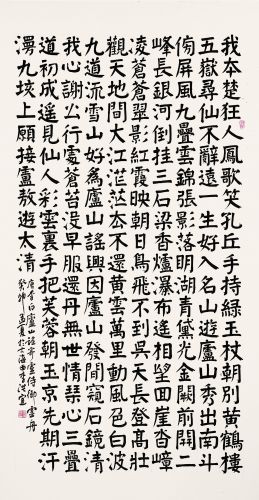 我本楚狂人鳳歌笑孔丘手持綠玉杖朝別黃鶴樓
五嶽尋仙不辭遠一生好入名山遊廬山秀出南斗
傍屏風九疊雲錦張影落明湖青黛光金闕前開二
峰長銀河倒挂三石梁香爐瀑布遙相望迴崖沓嶂
凌蒼蒼翠影紅霞映朝日鳥飛不到吳天長登高壯
觀天地間大江茫茫去不還黃雲萬里動風色白波
九道流雪山好為廬山謠興因廬山發閒窺石鏡清
我心謝公行處蒼苔沒早服還丹無世情琴心三疊
道初成遙見仙人彩雲裏手把芙蓉朝玉京先期汗
漫九垓上願接盧敖遊太清
唐李白廬山謠寄盧侍御虛舟
夏於上海